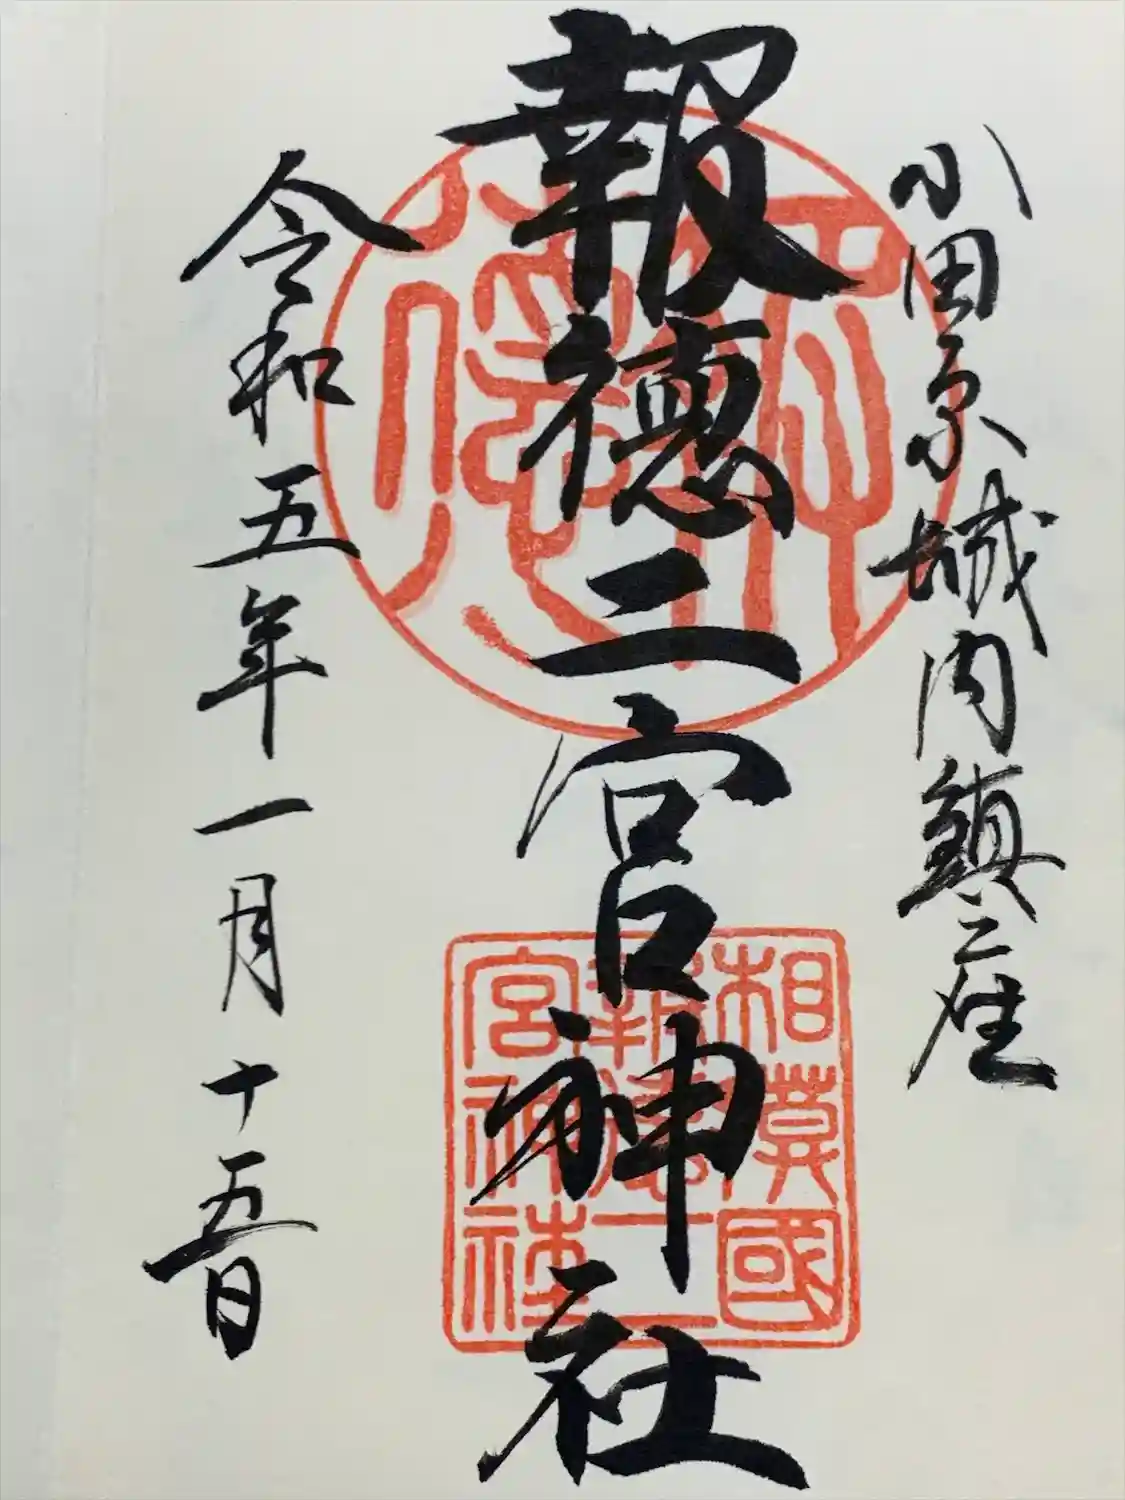 小田原城内鎮座
報徳二宮神社
令和五年一月十五日
相莫國
報徳二
宮神社